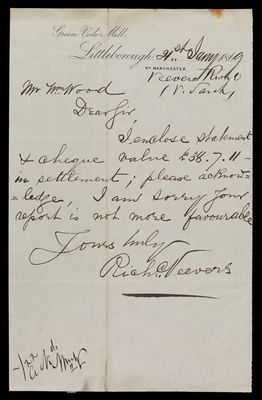 Green Vale Mills
Littleborough 21st Jany 1889
Nr MANCHESTER.
Veevers Richd
Mr Wm Wood
Dear Sir,
I enclose statement
& cheque value £38.7.11-
in settlement; please acknow=
=ledge, I am sorry your
report is not more favourable
Yours truly
Richd Veevers